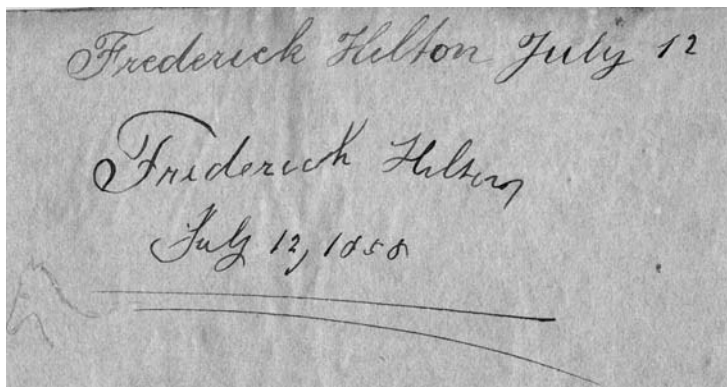 Frederick Hilton July 12
Frederick Hilton
July 12, 1858